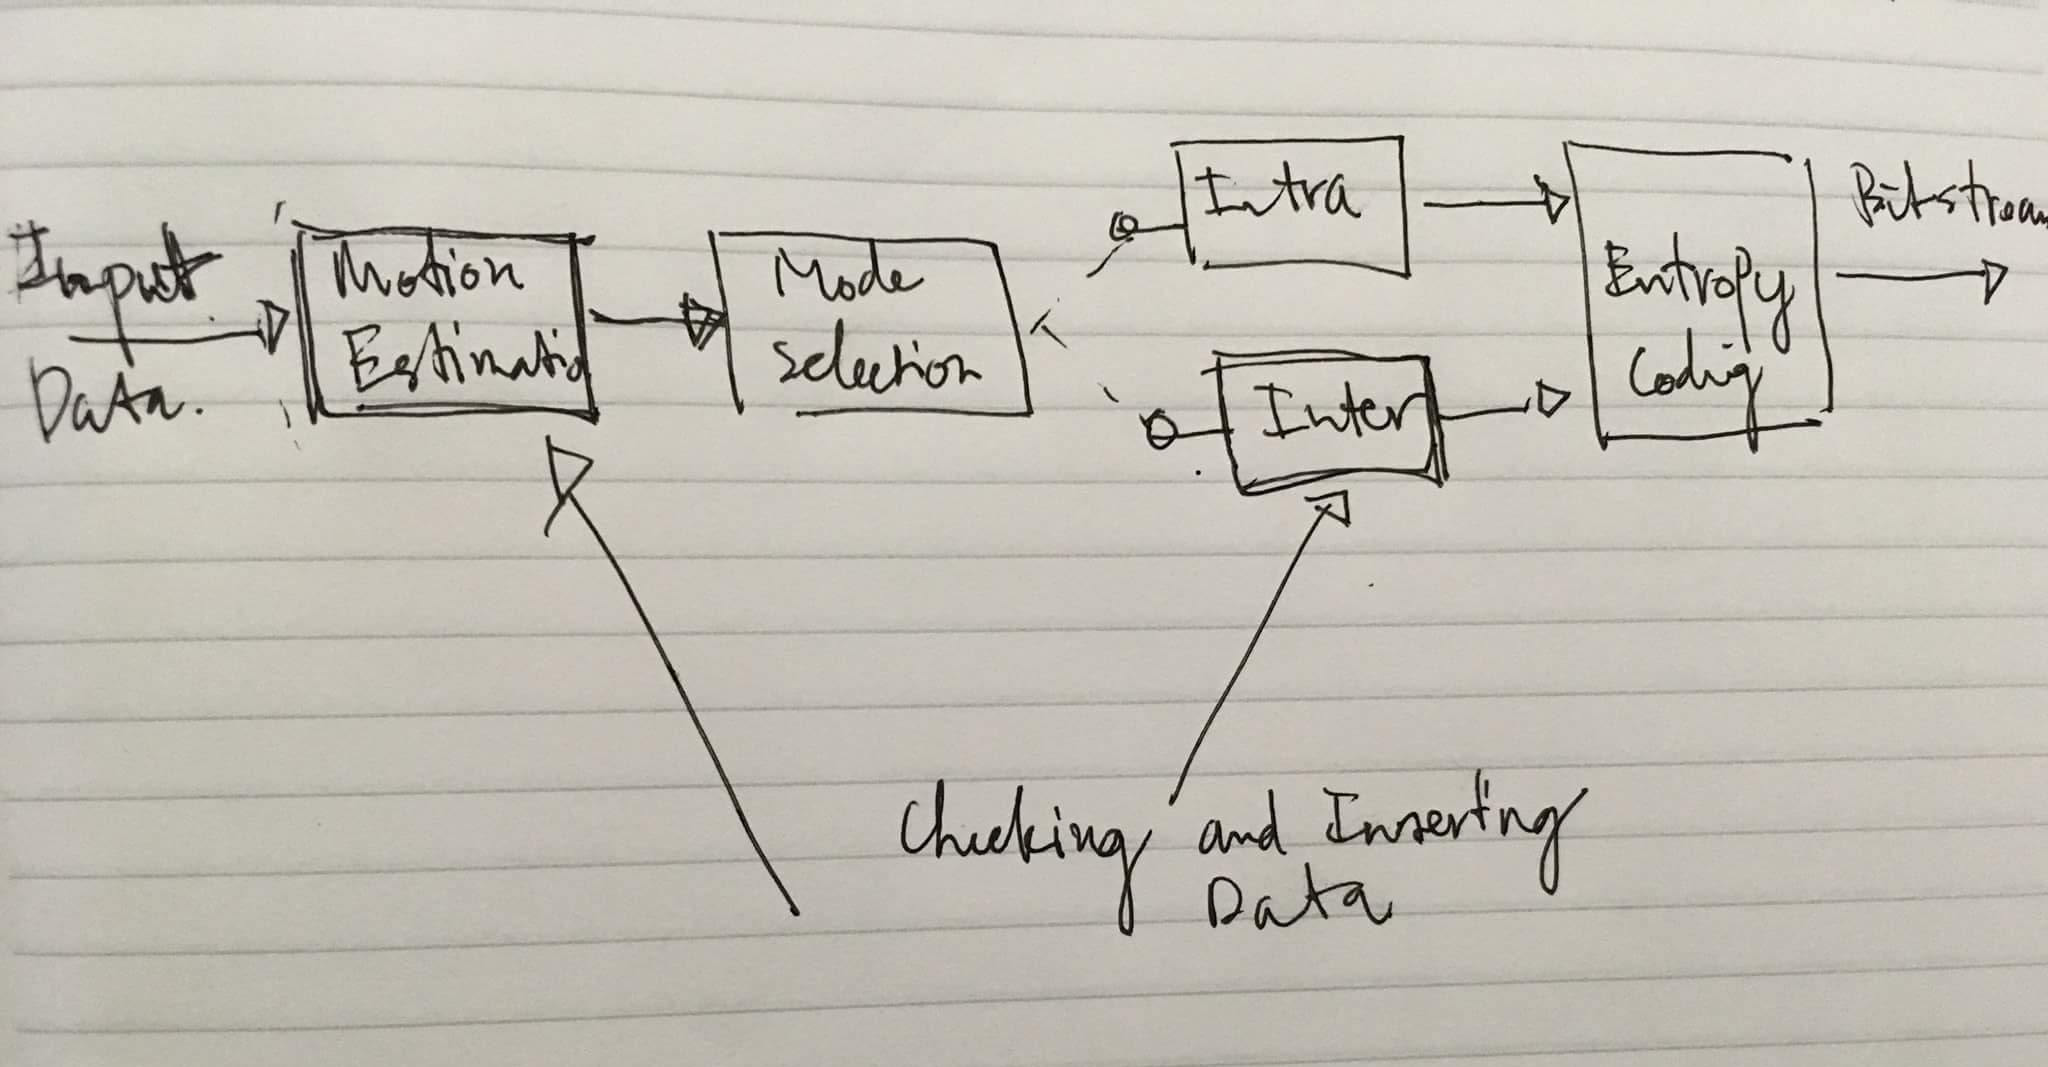 Input
Data.
Motion
Estimatio
Mode
Selection
Intra
Inter
Entropy
Codig
Bitstream
Checking and Inserting
Data